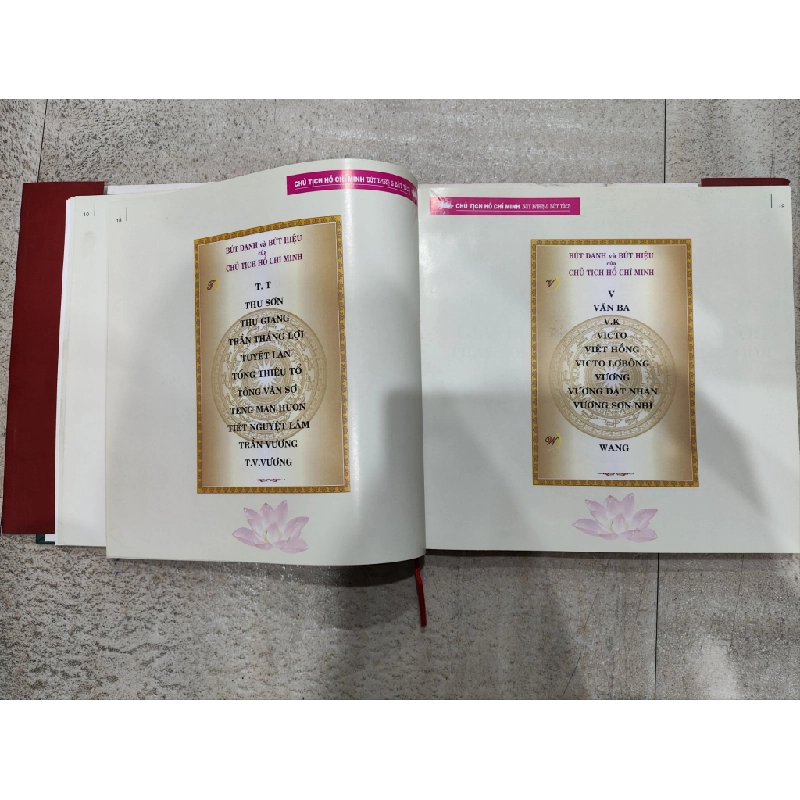 10
CHỦ TỊCH HỒ CHÍ MINH BÚT DANH & BÚT TÍCH
BÚT DANH và BÚT HIỆU
của
CHỦ TỊCH HỒ CHÍ MINH
T
T. T
THU SƠN
THU GIANG
TRẦN THẮNG LỢI
TUYẾT LAN
TỐNG THIỆU TỔ
TỐNG VĂN SƠ
TENG MAN HUON
TIẾT NGUYỆT LÂM
TRẦN VƯƠNG
T.V.VƯƠNG
CHỦ TỊCH HỒ CHÍ MINH BÚT DANH & BÚT TÍCH
BÚT DANH và BÚT HIỆU
của
CHỦ TỊCH HỒ CHÍ MINH
V
V
VĂN BA
V.K
VICTO
VIỆT HỒNG
VICTO LƠBÔNG
VƯƠNG
VƯƠNG ĐẠT NHÂN
VƯƠNG SƠN NHI
W
WANG